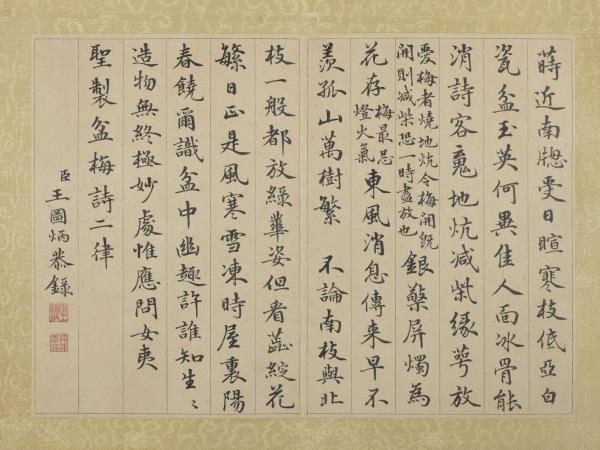 蒔近南牕受日暄寒枝低亞白
瓷盆玉英何異佳人面冰骨能
消詩客䰟地炕減柴緣萼放
愛梅者燒地炕令梅開旣
開則減柴恐一時盡放也
銀檠屏燭為
花存
梅最忌
燈火氣
東風消息傳来早不
羨孤山萬樹繁 不論南枝與北
枝一般都放綠蕚姿但看蕋綻花
繁日正是風寒雪凍時屋裏陽
春饒爾識盆中幽趣許誰知生〻
造物無終極妙處惟應問女夷
聖製盆梅詩二律
臣王圖炳恭錄